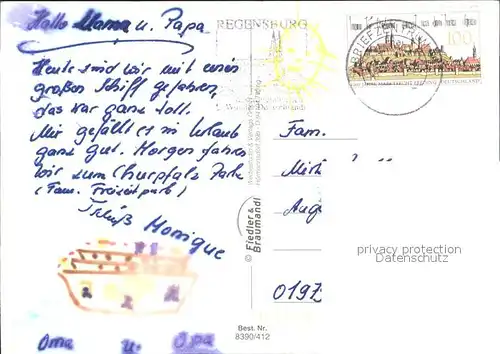 Hallo Mama u. Papa
Heute sind wir mit einen
großen Schiff gefahren,
das war ganz toll.
Mir gefällt es im Urlaub
ganz gut. Morgen fahren
wir zum Churpfalz Park
(Fam. Freizeitpark)
Gruß Monique
Oma u. Opa
REGENSBURG
BRIEFZENTRUM
100
DEUTSCHLAND
© Fiedler &
Braumandl
Best. Nr.
8390/412
Fam.
Aug
0197
privacy protection
Datenschutz